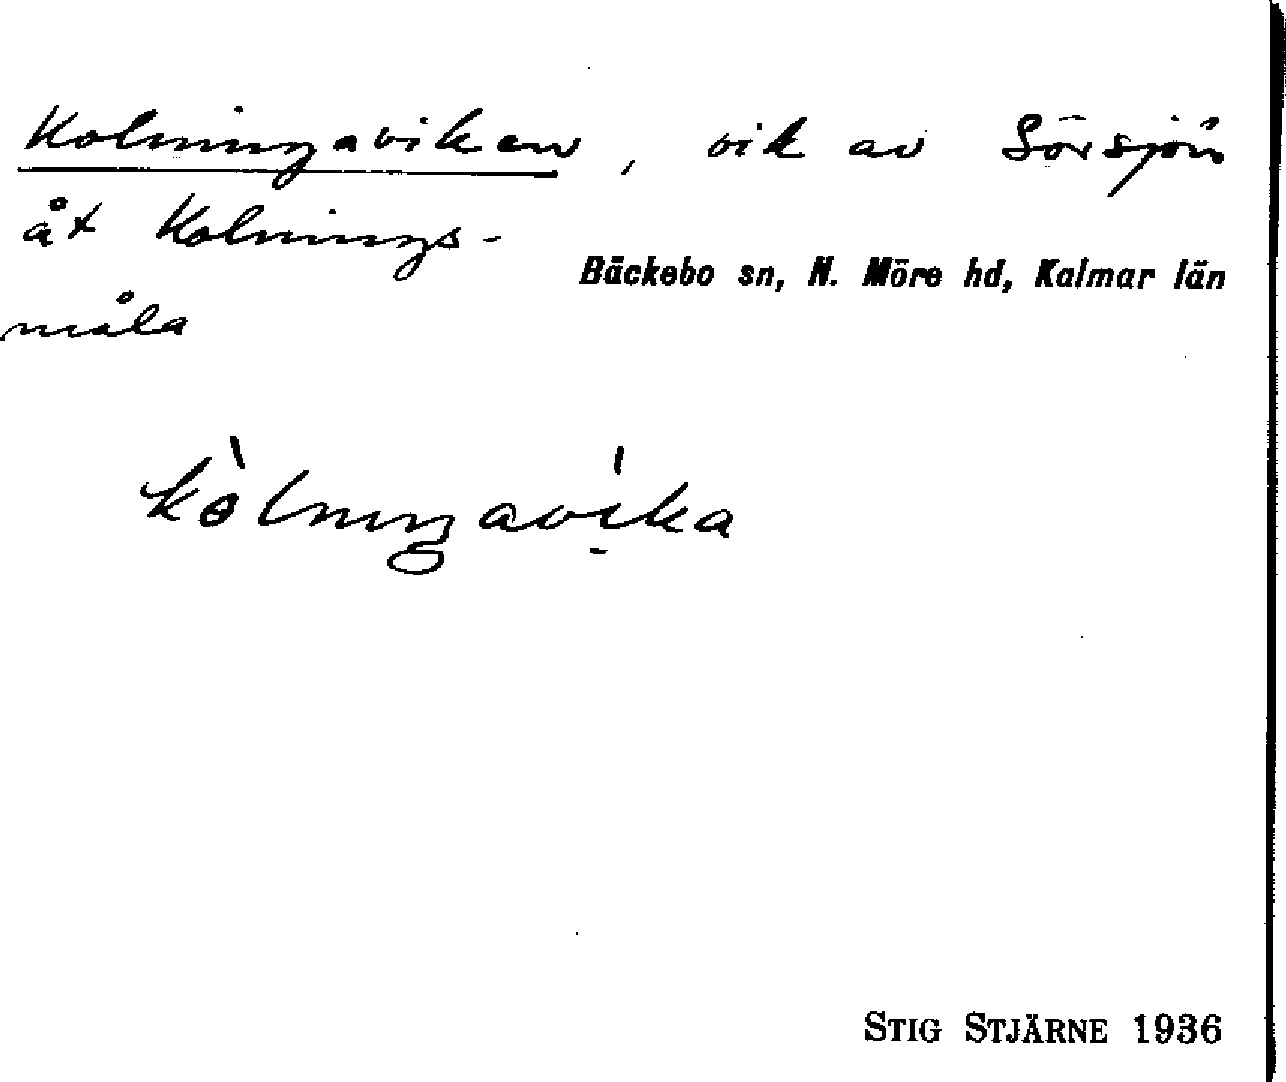 Kolningaviken, vik av Sörsjön
åt Kolnings-
Bäckebo sn, N. Möre hd, Kalmar län
måla
kòlningavíka
STIG STJÄRNE 1936